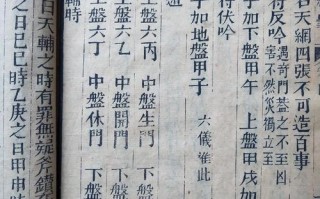 占天網四張不可造百事
時反吟
遇奇門蓋之不至凶
害不然災禍立至
子加下盤甲午
上盤甲戌如
子加地盤甲子
六儀准此
時伏吟
上盤六丙 中盤生門 下盤
上盤六丁 中盤開門 下盤
上盤六乙 中盤休門 下盤
輔時
日天輔之時有罪無疑斧鑕在
之日己巳時乙庚之日甲申時